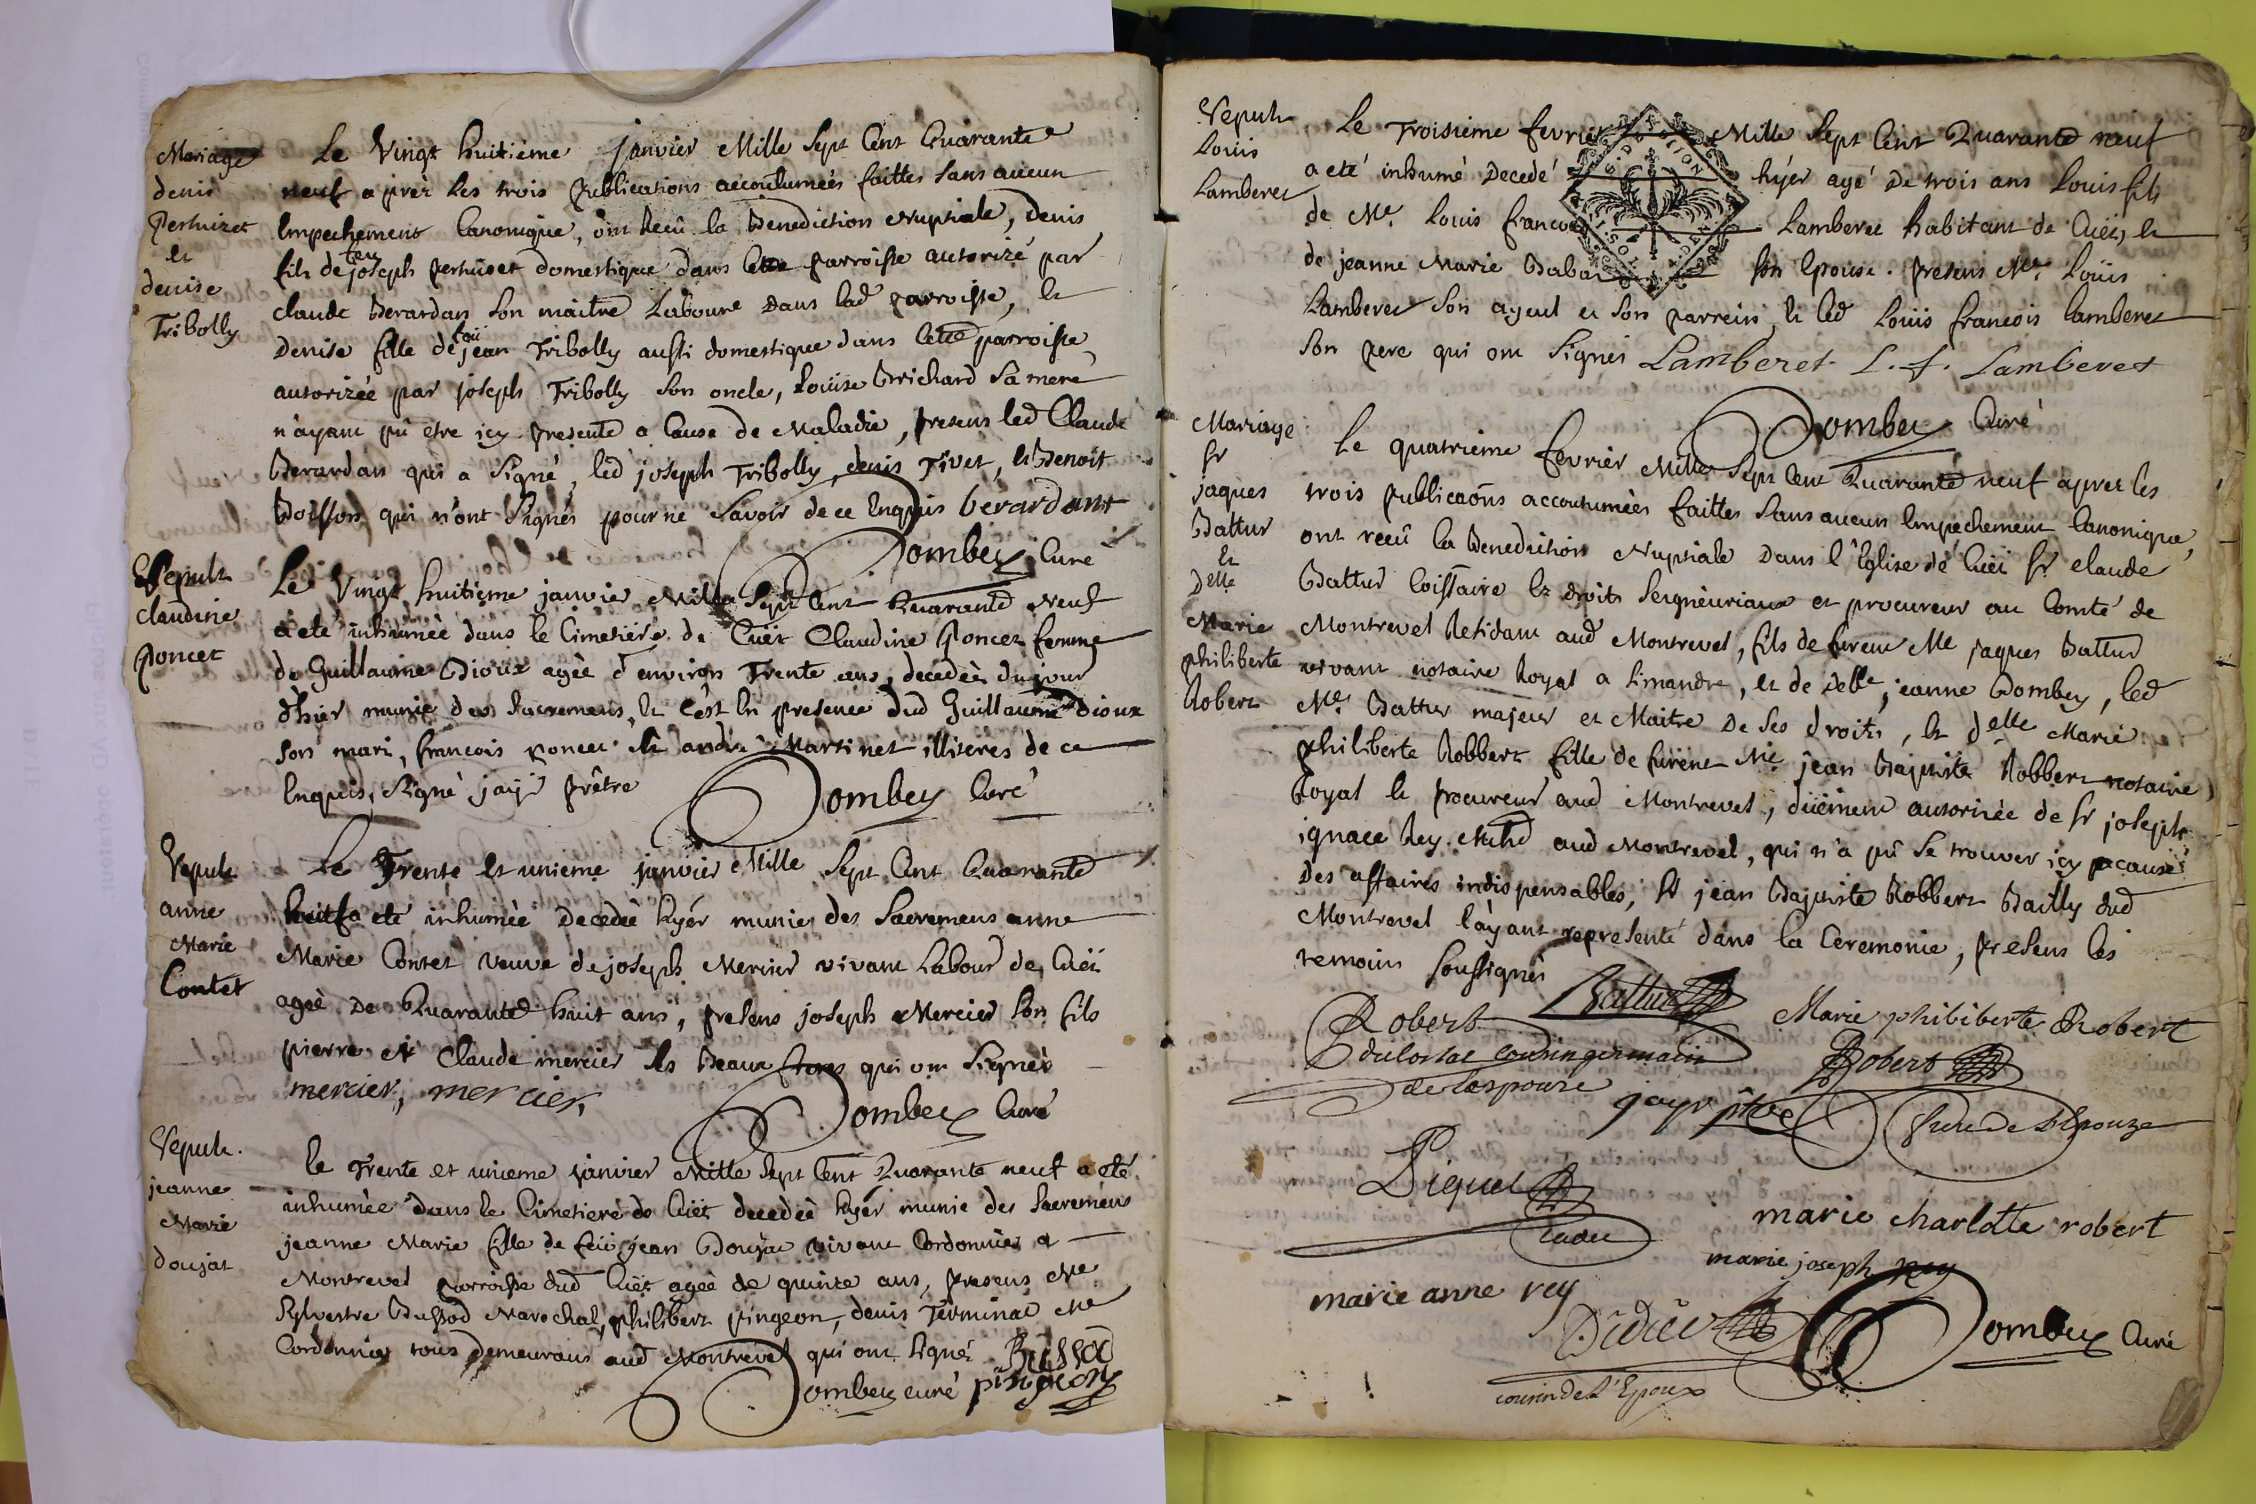 Mariage
denis
Perhuizet
et
denise
Tribolly
Le Vingt huitième janvier Mille Sept Cent Quarante
neuf apréz les trois publications accoutumées faittes sans aucun
Empechement Canonique, ont Receû la Benediction Nuptiale, Denis
fils de feu joseph perhuizet domestique dans cette parroisse autorizé par
claude Berardan son maitre Laboure dans lad parroisse, et
Denise fille de feü jean Tribolly aussi domestique dans Cette parroisse
autorizée par joseph Tribolly son oncle, Loüise Brichard sa mere
n'ayant pû etre icy presente a Cause de Maladie, presens led Claude
Berardan qui a Signé, led joseph Tribolly, denis Tivet, et Benoit
Boisson qui n'ont Signés pour ne Savoir de ce Enquis berardant
Dombey Curé
Sepult
claudine
poncet
Le Vingt huitième janvier Mille Sept Cent Quarante Neuf
a été inhumée dans le Cimetière de Cuët Claudine Poncet femme
de Guillaume Dioux agée d'environ Trente ans, decedée du jour
d'hier munie des Sacremens, et c'est En presence dud Guillaume Dioux
son mari, francois poncet et andré Martinet illiteres de ce
Enquis, Signé jayr prêtre
Dombey Curé
Sepult
anne
Marie
Contet
Le Trente et unieme janvier Mille Sept Cent Quarante
huit a eté inhumée Decedée hyér munie des Sacremens anne
Marie Contet veuve de joseph Mercier vivant Labour de Cuët
agée De Quarante huit ans, presens joseph Mercier son fils
pierre et Claude mercier ses Beaux freres qui ont Signés
mercier, mercier,
Dombey Curé
Sepult.
jeanne
Marie
doujat
Le Trente et unieme janvier Mille Sept Cent Quarante neuf a eté
inhumée dans le Cimetiere de Cuët decedée hyér munie des Sacremens
jeanne Marie fille de feü jean Doujat vivant Cordonnier a
Montrevel parroisse dud Cuët agée de quinze ans, presens Me
Sylvestre Bussod Marechal, philibert pingeon, denis Terminat Me
Cordonnier tous demeurans aud Montrevel qui ont signé Bussod
Dombey curé pingeon
Sepult
Loüis
Lamberet
Le Troisieme fevrier Mille Sept Cent Quarante neuf
a eté inhumé Decedé hyér agé De trois ans Louis fils
de Me. Louis francois Lamberet habitant de Cuët, et
de jeanne Marie Babad son Epouse. presens Me. Loüis
Lamberet son ayeul et son parrein, et led Loüis francois lamberet
son pere qui ont Signés Lamberet L. f. Lamberet
Dombey Curé
Mariage
Sr
jaques
Battur
et
Delle
Marie
philiberte
Robert
Le quatrieme fevrier Mille Sept Cent Quarante neuf apréz les
trois publicaõns accoutumées faittes Sans aucun Empechement Canonique,
ont receû la Benediction Nuptiale Dans l'Eglise de Cuët Sr claude
Battur Coissaire Ez droits Seigneuriaux et procureur au Comté de
Montrevel Residant aud Montrevel, fils de fureut Me jaques Battur
vivant notaire Royal a simandre, et de Delle, jeanne Dombey, led
Me. Battur majeur et Maitre De ses droits, et delle Marie
philiberte Robbert fille de fürent Me jean Baptiste Robbert notaire
Royal et procureur aud Montrevel, düement autorizée de Sr joseph
ignace Rey Mchd aud Montrevel, qui n'a pû se trouver icy a cause
Des affaires indispensables, Sr jean Baptiste Robbert Bailly dud
Montrevel l'ayant representé dans la Ceremonie, presens les
temoins soussignés
Battur
Marie philiberte Robert
Robert
cousin germain
de lespouze
Robert
frere de l'Epouze
jayr ptre
Piquet
Cadet
marie charlotte robert
marie joseph rey
marie anne rey
Dombey Curé
cousin de l'Epoux